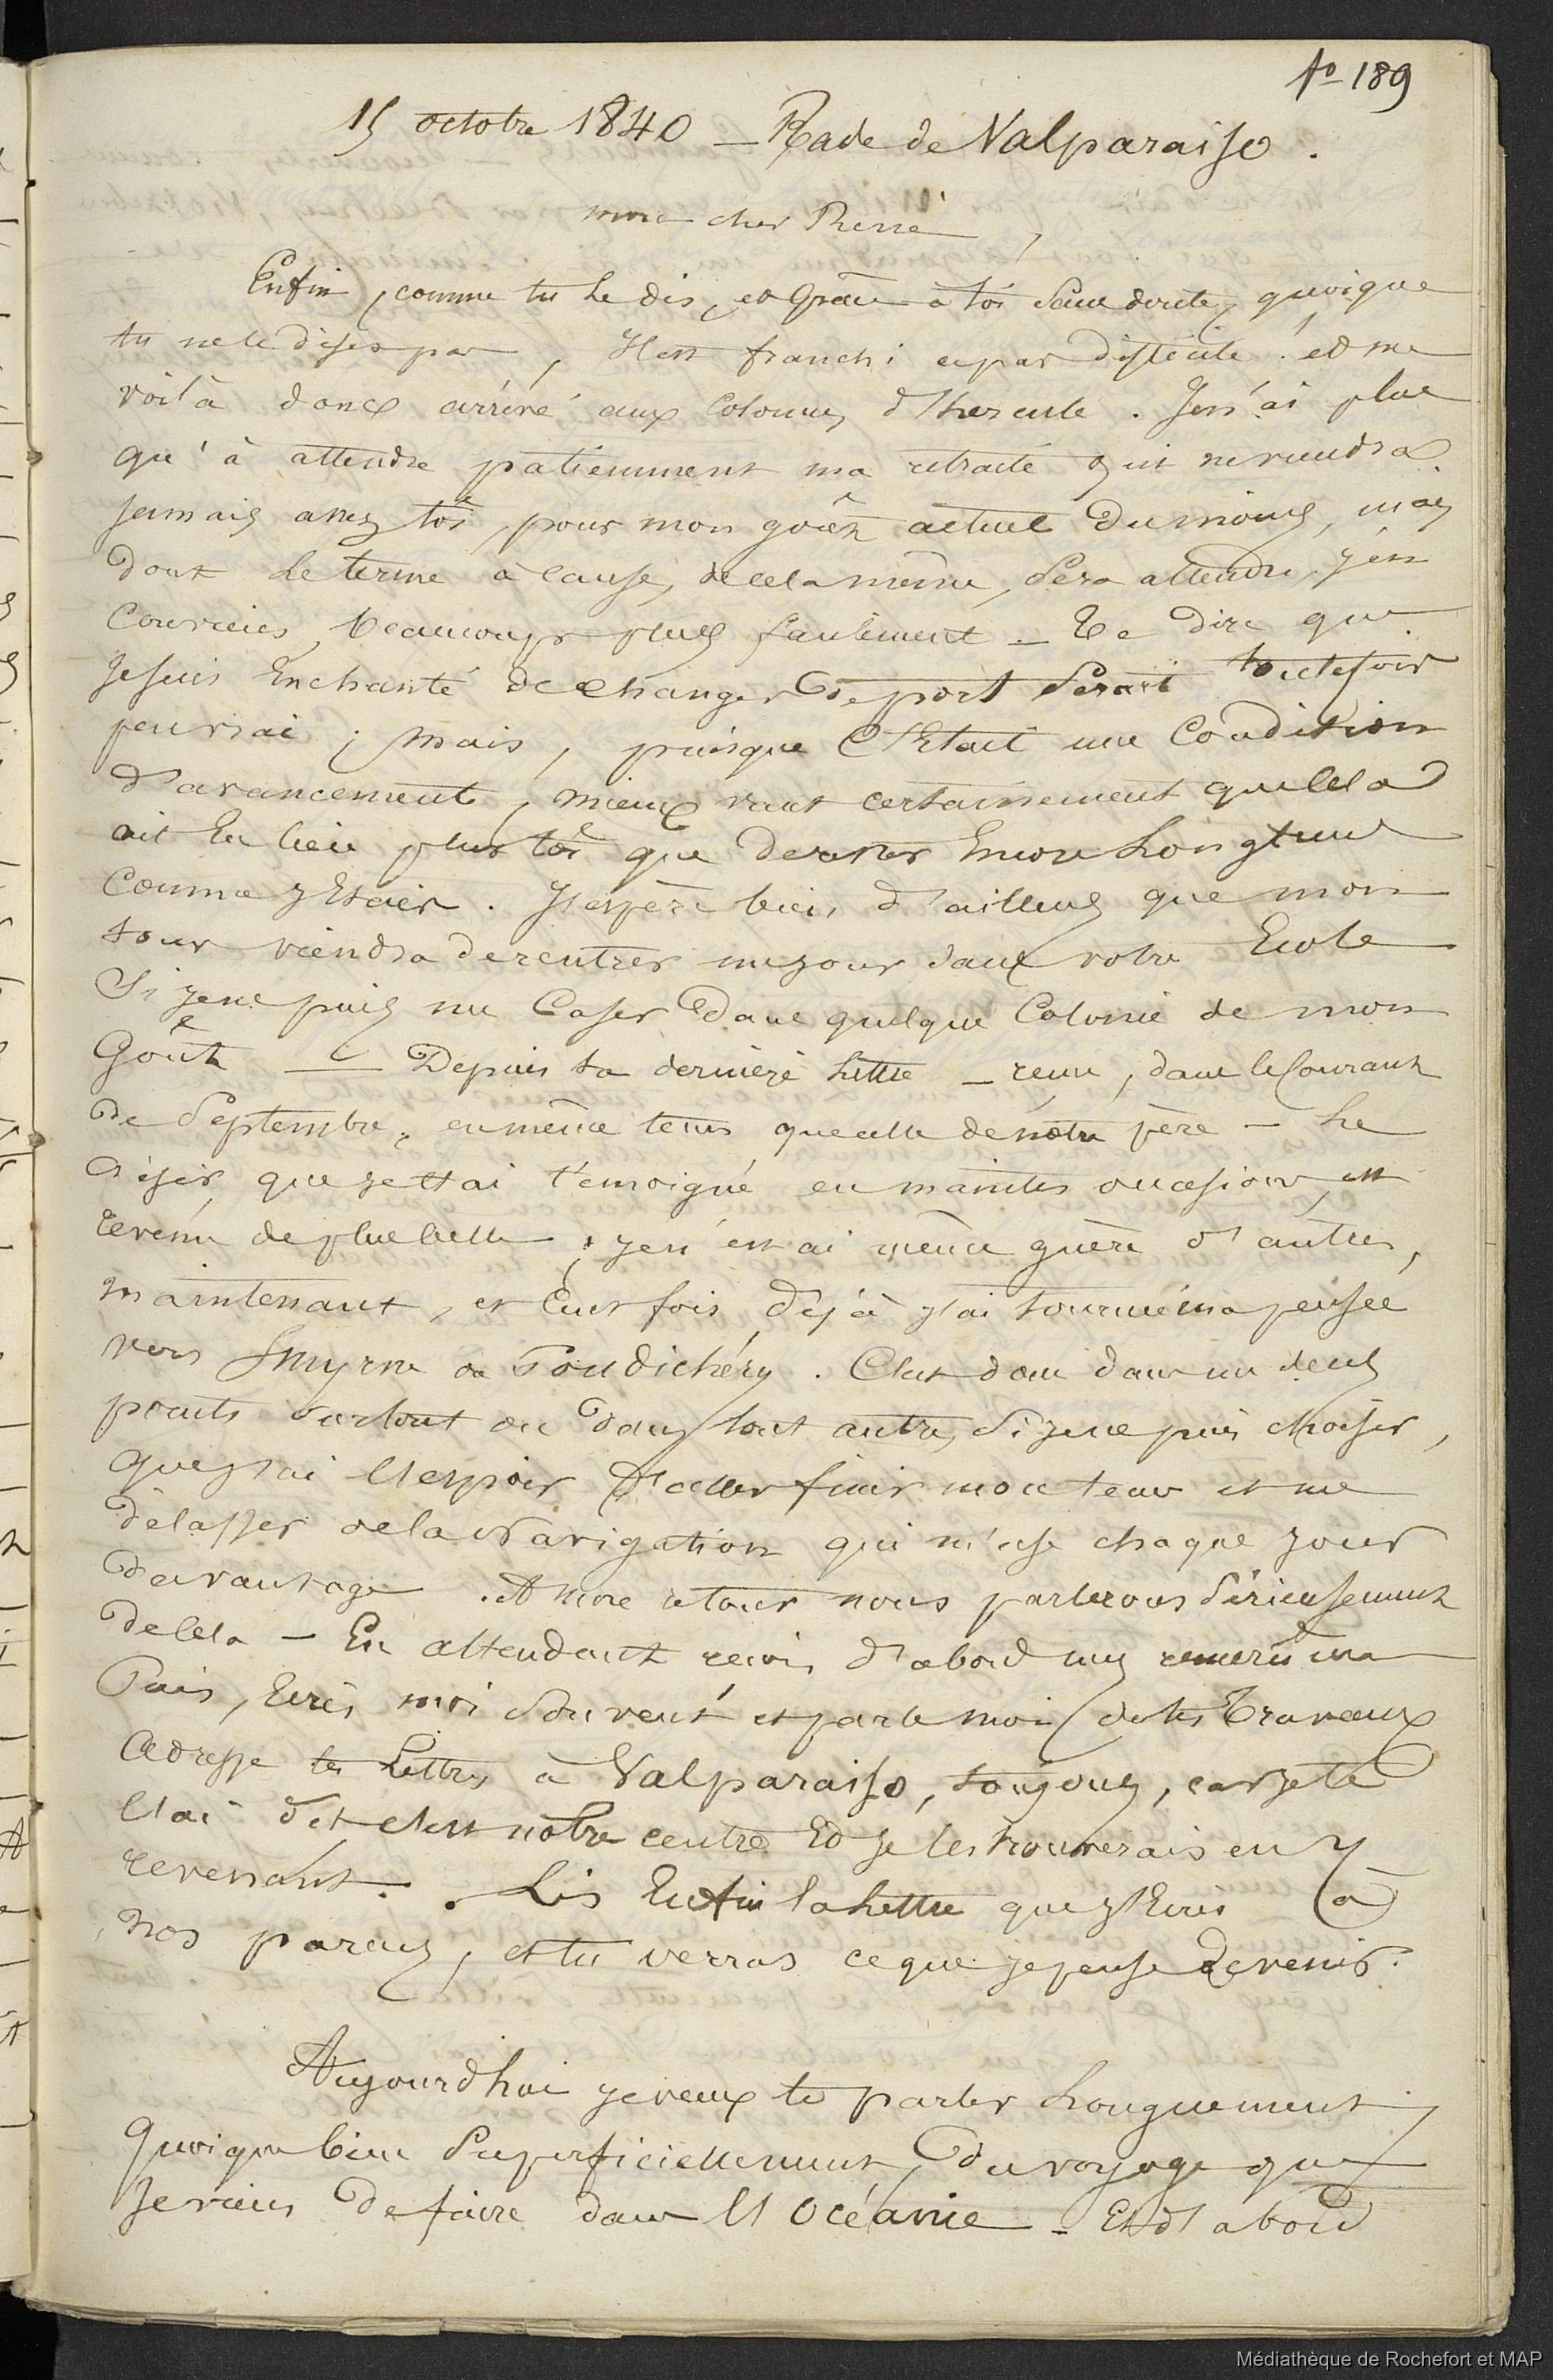 fo 189
15 octobre 1840 — Rade de Valparaiso.
mon cher René,
Enfin, comme tu le dis, et grâce à toi sans doute, quoique
tu ne le dises pas, il est franchi ce pas difficile ! et me
voilà donc arrivé aux Colonnes d'hercule. Je n'ai plus
qu'à attendre patiemment ma retraite qui ne viendra
jamais assez tôt, pour mon goût actuel du moins, mais
dont le terme à cause de cela même, sera attendu, j'en
conviens, beaucoup plus
Te dire que
je suis Enchanté de changer de port Serait toutefois
peu vrai ; mais, puisque C'Etait une Condition
d'avancement, mieux vaut certainement que cela
ait Eu lieu plus tôt que de rester Encore Longtems
comme j'Etais. J'espère bien d'ailleurs que mon
tour viendra de rentrer un jour dans votre Ecole
Si je ne puis me Caser dans quelque Colonie de mon
Goût — Depuis ta dernière Lettre — reçue, dans le Courant
de Septembre, en même tems que celle de notre père — Le
désir que je t'ai témoigné en maintes occasions, est
revenu de plus belle ; je n'en ai même guère d'autres,
maintenant, et Cent fois déjà j'ai tourné ma pensée
vers Smyrne ou Pondichéry. C'est donc dans un de ces
points surtout ou dans tout autre, Si je ne puis choisir,
que j'ai l'espoir d'aller finir mon tems et me
délasser de la Navigation qui m'use chaque jour
davantage. A mon retour nous parlerons Sérieusement
de cela — En attendant reçois d'abord mes
Puis, Ecris moi Souvent et parle moi de tes Travaux
Adresse tes Lettres à Valparaiso, toujours, car je te
l'ai dit c'est notre centre Et je les trouverais en y
revenant. Lis Enfin la Lettre que j'Ecris à
nos parens, et tu verras ce que je pense devenir.
Aujourd'hui je veux te parler Longuement
quoique bien Superficiellement, du voyage que
Je viens de faire dans l'Océanie — Et d'abord
Médiathèque de Rochefort et MAP